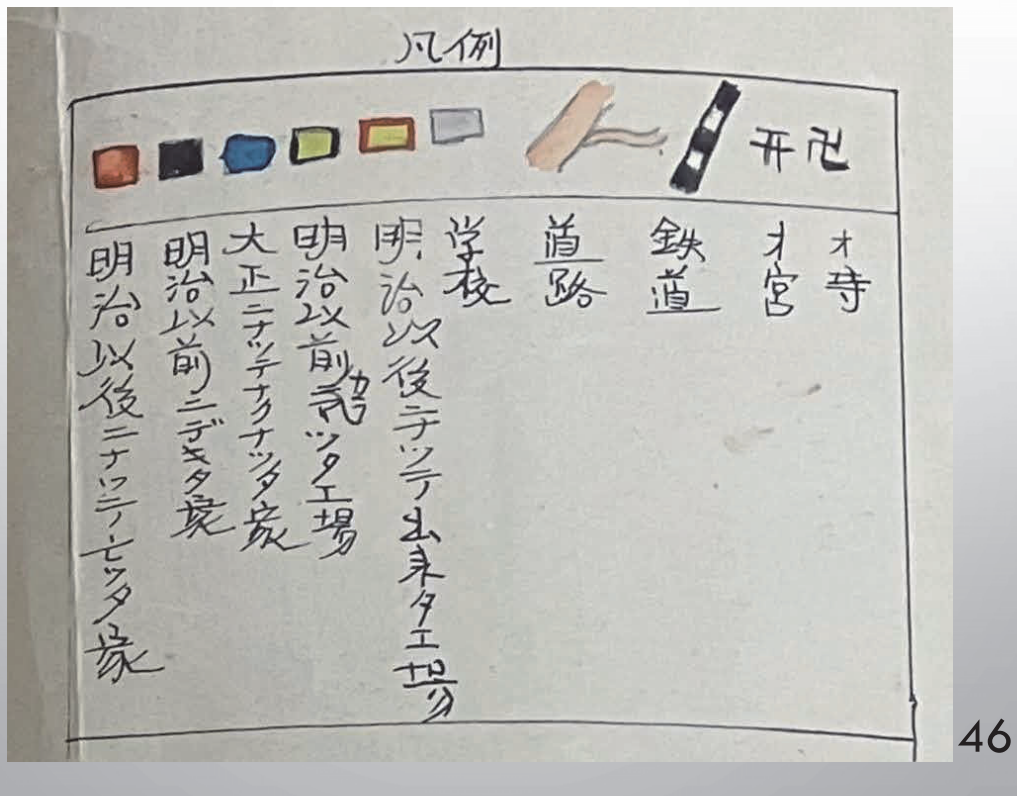 凡例
オ寺
オ宮
鉄道
道路
学校
明治以後ニナツテ出来タ工場
明治以前カラツタ工場
大正ニナツテナクナツタ家
明治以前ニデキタ家
明治以後ニナツテ亡ツタ家
46